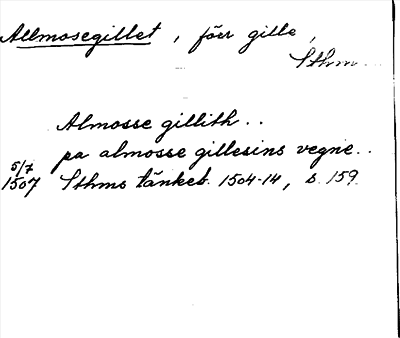 Allmosegillet, föer gille,
Sthm.
Almosse gillith..
pa almosse gillesins vegne..
5/7
1507 Sthms tänkeb. 1504-14, s. 159.